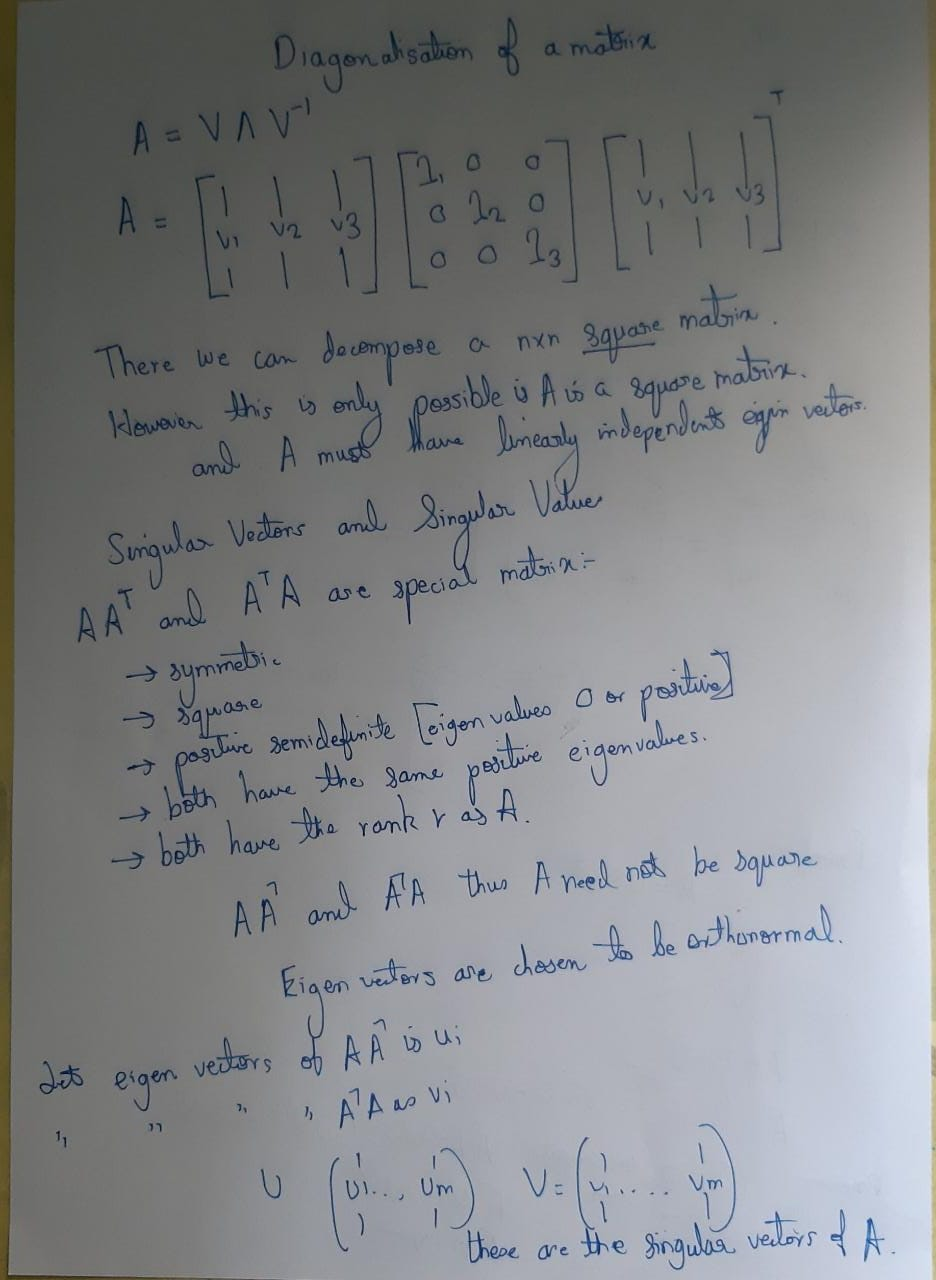 Diagonalisation of a matrix
A = V Λ V⁻¹
A = [v₁ v₂ v₃] [λ₁ 0 0; 0 λ₂ 0; 0 0 λ₃] [v₁ v₂ v₃]ᵀ
There we can decompose a nxn square matrix.
However this is only possible is A is a square matrix.
and A must have linearly independents eigin vectors.
Singular Vectors and Singular Values
AAᵀ and AᵀA are special matrix:-
→ symmetric
→ square
→ positive semidefinite [eigen values 0 or positive]
→ both have the same positive eigenvalues.
→ both have the rank r as A.
AAᵀ and AᵀA thus A need not be square
Eigen vectors are chosen to be orthonormal.
Let eigen vectors of AAᵀ is uᵢ
" " " " AᵀA as vᵢ
U (u₁ ..., um) V = (v₁ .... vm)
these are the singular vectors of A.